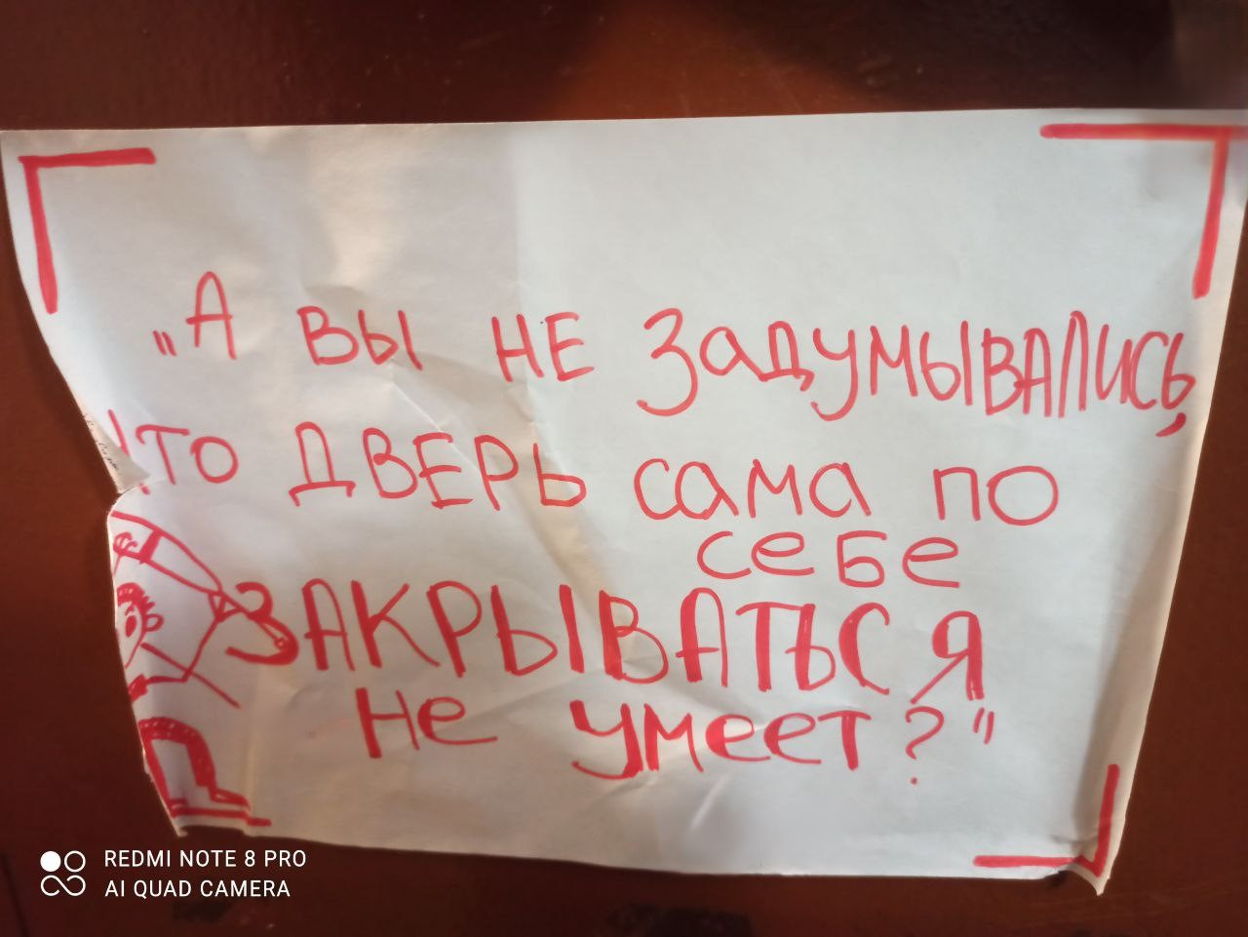 „А ВЫ НЕ ЗАДУМЫВАЛИСЬ,
ЧТО ДВЕРЬ САМА ПО
СЕБЕ
ЗАКРЫВАТЬСЯ
НЕ УМЕЕТ?"
REDMI NOTE 8 PRO
AI QUAD CAMERA